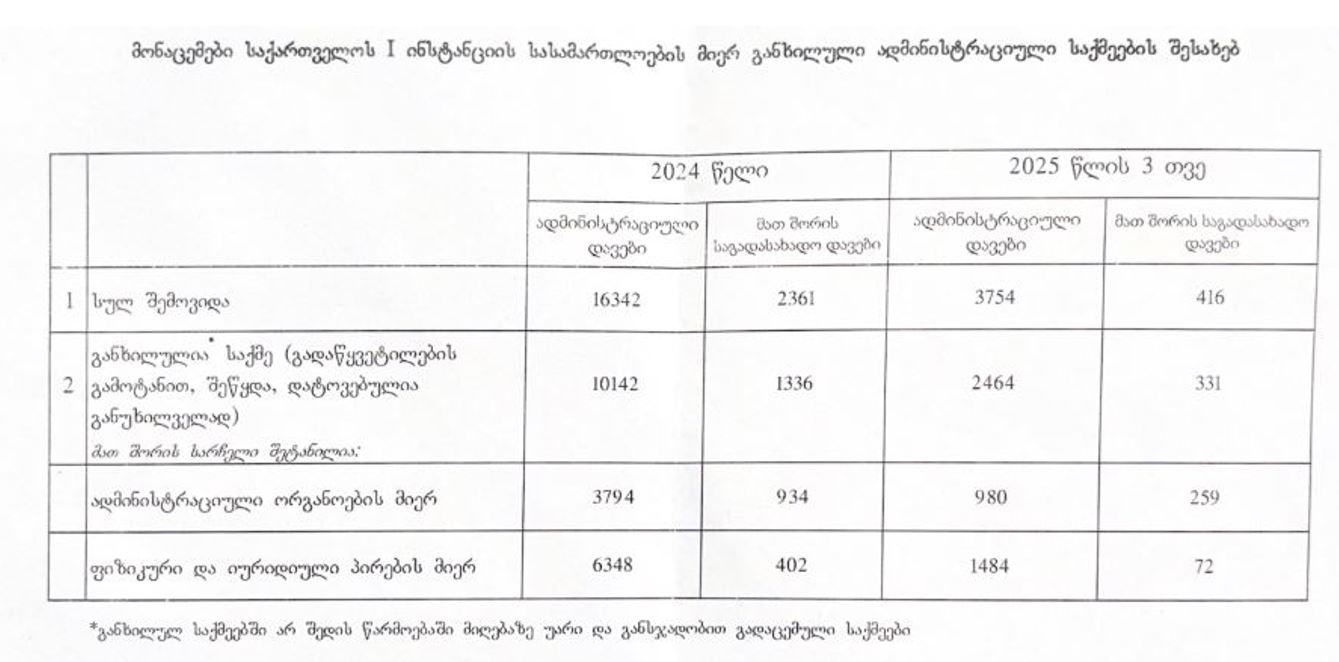 მონაცემები საქართველოს I ინსტანციის სასამართლოების მიერ განხილული ადმინისტრაციული საქმეების შესახებ
2024 წელი 2025 წლის 3 თვე
ადმინისტრაციული დავები მათ შორის საგადასახადო დავები ადმინისტრაციული დავები მათ შორის საგადასახადო დავები
1 სულ შემოვიდა 16342 2361 3754 416
განხილულია* საქმე (გადაწყვეტილების
2 გამოტანით, შეწყდა, დატოვებულია 10142 1336 2464 331
განუხილველად)
მათ შორის სარჩელი შეტანილია:
ადმინისტრაციული ორგანოების მიერ 3794 934 980 259
ფიზიკური და იურიდიული პირების მიერ 6348 402 1484 72
*განხილულ საქმეებში არ შედის წარმოებაში მიღებაზე უარი და განსჯადობით გადაცემული საქმეები